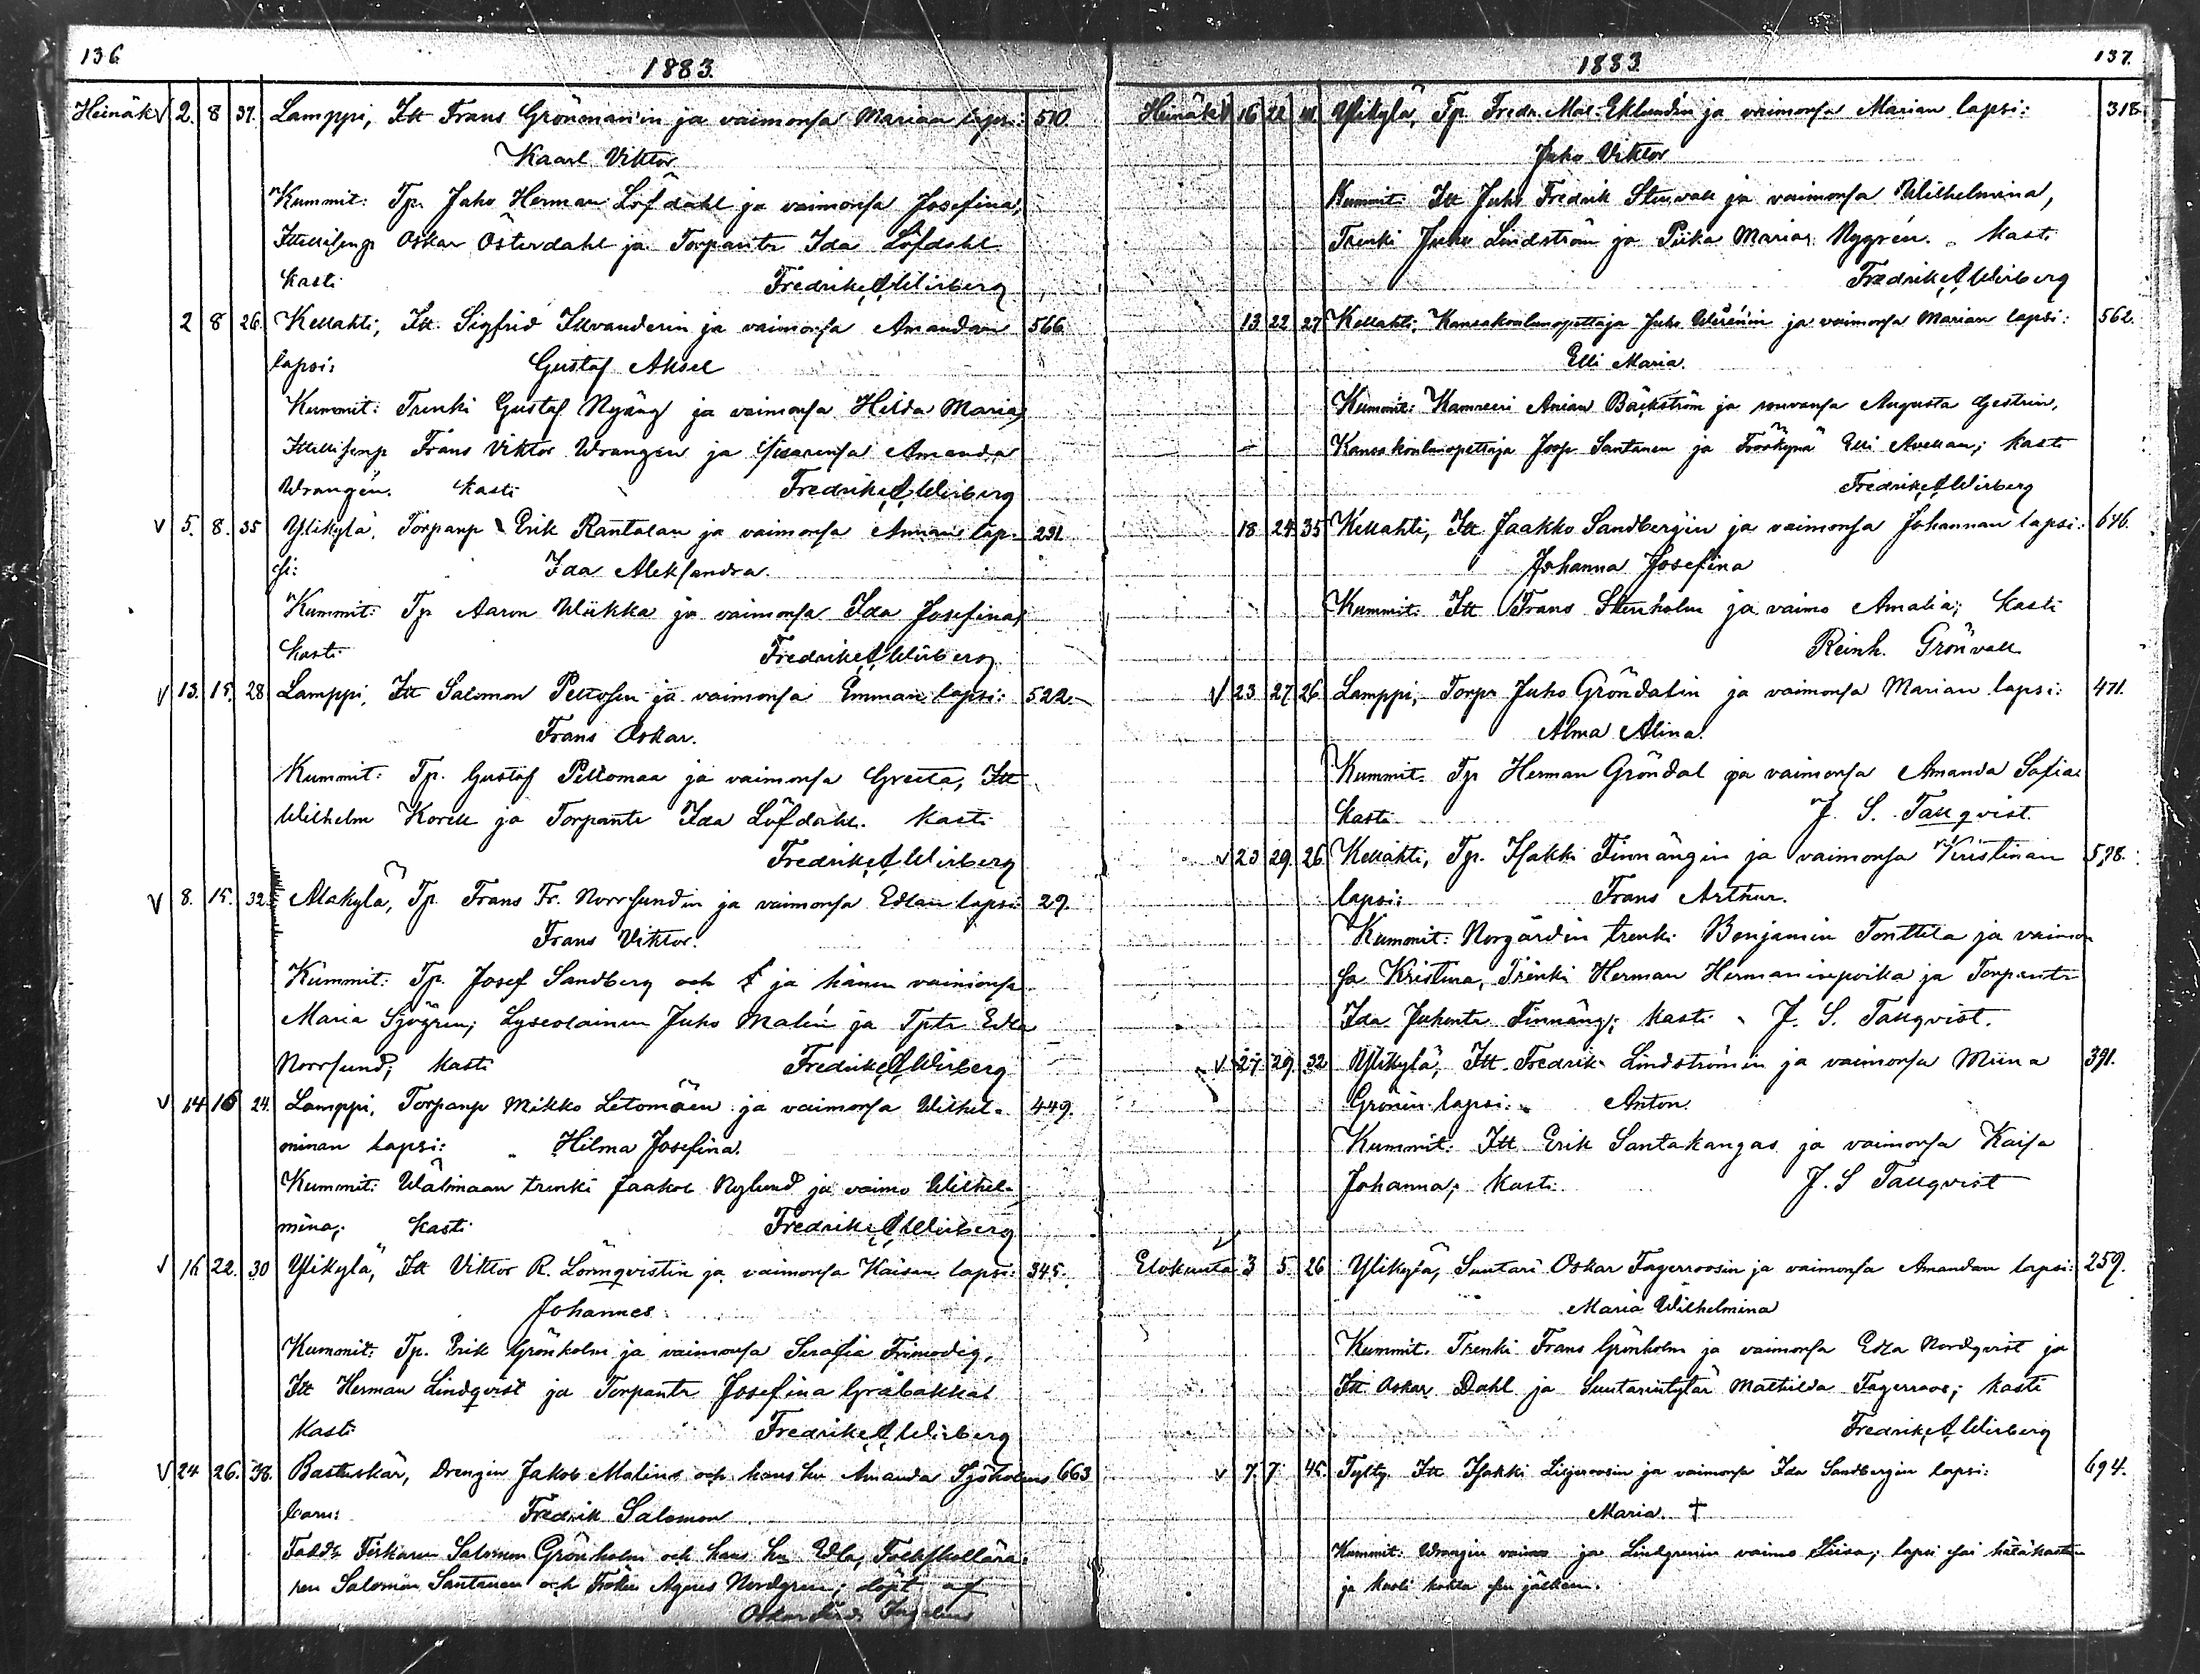 136
1883.
Heinäk. V 2. 8 37. Lamppi, Itt Frans Grönman'in ja vaimonsa Marian lapsi: 510.
Kaarl Viktor
Kummit: Tp. Juho Herman Löfdahl ja vaimonsa Josefina,
Oskar Österdahl ja Torpantr Ida Löfdahl
Kasti Fredrik A Wirberg
2 8 26. Kellahti, Itt. Sigfrid ja vaimonsa Amandan 566.
lapsi: Gustaf Aksel
Kummit: Trenki Gustaf Nyäng ja vaimonsa Hilda Maria,
Frans Viktor Wrangen ja sisarensa Amanda
Wrangén. Kasti Fredrik A Wirberg
V 5. 8. 35 Ylikylä, Torpanp Erik Rantalan ja vaimonsa Annan lap- 291
si: Ida Aleksandra.
Kummit: Tp Aaron Wiikka ja vaimonsa Ida Josefina,
Kasti Fredrik A Wirberg
V 13. 15. 28 Lamppi, Itt Salomon ja vaimonsa Emman lapsi: 522.
Frans Oskar.
Kummit: Tp. Gustaf Peltomaa ja vaimonsa Greeta, Itt
Wilhelm Korell ja Torpantr Ida Löfdahl. Kasti
Fredrik A Wirberg
V 8. 15. 32. Alakylä, Tp. Frans Fr. Norrsundin ja vaimonsa Edlan lapsi: 29.
Frans Viktor.
Kummit: Tp. Josef Sandberg och ja hänen vaimonsa
Maria Sjögren; Lyseolainen Juho Malén ja Tptr Edla
Norrsund; Kasti Fredrik A Wirberg
V 14 15 24. Lamppi, Torpanp Mikko Letomäen ja vaimonsa Wilhel- 449.
minan lapsi: Hilma Josefina.
Kummit: Wälimaan trenki Jaakob Nylund ja vaimo Wilhel-
mina; Kasti Fredrik A Wirberg
V 16 22. 30 Ylikylä, Itt Viktor R. Lönnqvistin ja vaimonsa Kaisan lapsi: 345.
Johannes
Kummit: Tp. Erik Grönholm ja vaimonsa Serafia Frimodig,
Itt Herman Lindqvist ja Torpantr Josefina Gråbakka;
Kasti Fredrik A Wirberg
V 24 26. 38. Bastuskär, Drengen Jakob Malins och hans hu Amanda Sjöholms 663
barn: Fredrik Salomon
Fadd: Fiskaren Salomon Grönholm och hans hu Ulla, Folkskollära-
ren Salomon Santanen och Fröken Agnes Nordgren; döpt af
Oskar Ferd.
1883
137.
Heinäk V 16 22 Ylikylä, Tp. Fredr. Mat. Eklundin ja vaimonsa Marian lapsi: 318
Juho Viktor
Kummit: Itt Juho Fredrik Stenvall ja vaimonsa Wilhelmina,
Trenki Juho Lindström ja Piika Maria Nygrén. Kasti
Fredrik A Wirberg
13 22 27 Kellahti, Kansakoulunopettaja Juho Werénin ja vaimonsa Marian lapsi: 562.
Elli Maria.
Kummit: Kamreeri Anian Bäckström ja rouvansa Augusta Gestrin,
Kansakoulunopettaja Joop Santanen ja Fröökynä Elli Avellan; Kasti
Fredrik A Wirberg
18 24 35 Kellahti, Itt Jaakko Sandbergin ja vaimonsa Johannan lapsi: 646.
Johanna Josefina
Kummit: Itt Frans Stenholm ja vaimo Amalia; Kasti
Reinh. Grönvall
V 23 27 26 Lamppi, Torpr Juho Gröndalin ja vaimonsa Marian lapsi: 471.
Alma Alina.
Kummit: Tp Herman Gröndal ja vaimonsa Amanda Sofia
Kasti J. S. Tallqvist.
V 23 29. 26 Kellahti, Tp. Isakki Finnängin ja vaimonsa Kristinan 578.
lapsi: Frans Arthur.
Kummit: Norgårdin trenki Benjamin Tonttila ja vaimon
sa Kristina, Trenki Herman Hermaninpoika ja Torpantr
Ida Juhontr Finnäng; Kasti J. S. Tallqvist.
V 27 29. 32 Ylikylä, Itt Fredrik Lindströmin ja vaimonsa Miina 391.
Grönin lapsi: Anton.
Kummit: Itt Erik Santakangas ja vaimonsa Kaisa
Johanna; Kasti J. S Tallqvist
Elokuuta V 3 5. 26 Ylikylä, Suutari Oskar Fagerroosin ja vaimonsa Amandan lapsi: 259.
Maria Wilhelmina
Kummit. Trenki Frans Grönholm ja vaimonsa Edla Nordqvist ja
Itt Oskar Dahl ja Suutarintytär Mathilda Fagerroos; Kasti
Fredrik A Wirberg
V 7. 7 45. Itt Isakki Liljeroosin ja vaimonsa Ida Sandbergin lapsi: 694.
Maria. †
Kummit: Wrangin vaimo ja Lindgrenin vaimo Liisa; lapsi sai hätäkasteen
ja kuoli kohta sen jälkeen.